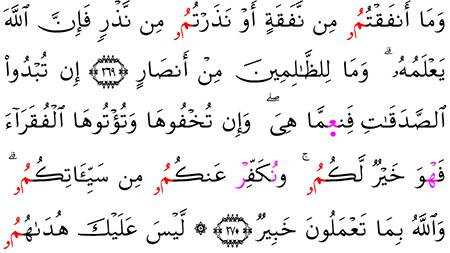 وَمَا أَنفَقْتُمُو مِن نَّفَقَةٍ أَوْ نَذَرْتُمُو مِن نَّذْرٍ فَإِنَّ ٱللَّهَ
يَعْلَمُهُۥ ۗ وَمَا لِلظَّـٰلِمِينَ مِنْ أَنصَارٍ ﴿٢٦٩﴾ إِن تُبْدُوا۟
ٱلصَّدَقَـٰتِ فَنِعِمَّا هِىَ ۖ وَإِن تُخْفُوهَا وَتُؤْتُوهَا ٱلْفُقَرَآءَ
فَهْوَ خَيْرٌ لَّكُمُو ۚ وَنُكَفِّرْ عَنكُمُو مِن سَيِّـَٔاتِكُمُو ۗ
وَٱللَّهُ بِمَا تَعْمَلُونَ خَبِيرٌ ﴿٢٧٠﴾ ۞ لَّيْسَ عَلَيْكَ هُدَىٰهُمُو